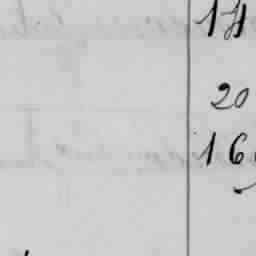 14
20
16